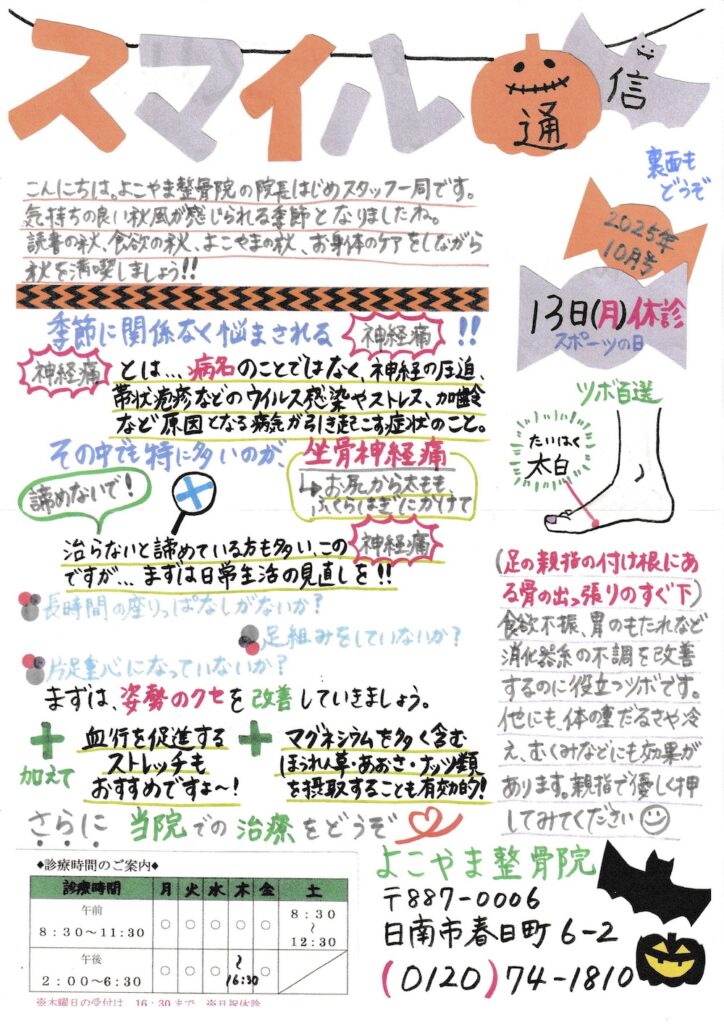 スマイル通信
裏面も
どうぞ
こんにちは。よこやま整骨院の院長はじめスタッフ一同です。
気持ちの良い秋風が感じられる季節となりましたね。
読書の秋、食欲の秋、よこやまの秋、お身体のケアをしながら
秋を満喫しましょう!!
2025年
10月号
13日(月)休診
スポーツの日
季節に関係なく悩まされる 神経痛 !!
神経痛 とは…病名のことではなく、神経の圧迫、
帯状疱疹などのウイルス感染やストレス、加齢
など原因となる病気が引き起こす症状のこと。
その中でも特に多いのが、坐骨神経痛
↳お尻から太もも、
ふくらはぎにかけて
諦めないで!
治らないと諦めている方も多い、この 神経痛
ですが…まずは日常生活の見直しを!!
長時間の座りっぱなしがないか?
足組みをしていないか?
片足重心になっていないか?
まずは、姿勢のクセを改善していきましょう。
+
加えて
血行を促進する
ストレッチも
おすすめですよ〜!
+
マグネシウムを多く含む
ほうれん草・あおさ・ナッツ類
を摂取することも有効的!
さらに 当院での治療をどうぞ
ツボ百選
たいはく
太白
(足の親指の付け根にあ
る骨の出っ張りのすぐ下)
食欲不振、胃のもたれなど
消化器系の不調を改善
するのに役立つツボです。
他にも、体の重だるさや冷
え、むくみなどにも効果が
あります。親指で優しく押
してみてください
◆診療時間のご案内◆
診療時間 月 火 水 木 金 土
午前
8:30〜11:30 ○ ○ ○ ○ ○ 8:30〜12:30
午後
2:00〜6:30 ○ ○ ○ 〜16:30 ○
※木曜日の受付は 16:30まで ※日祝休診
よこやま整骨院
〒887-0006
日南市春日町6-2
(0120)74-1810